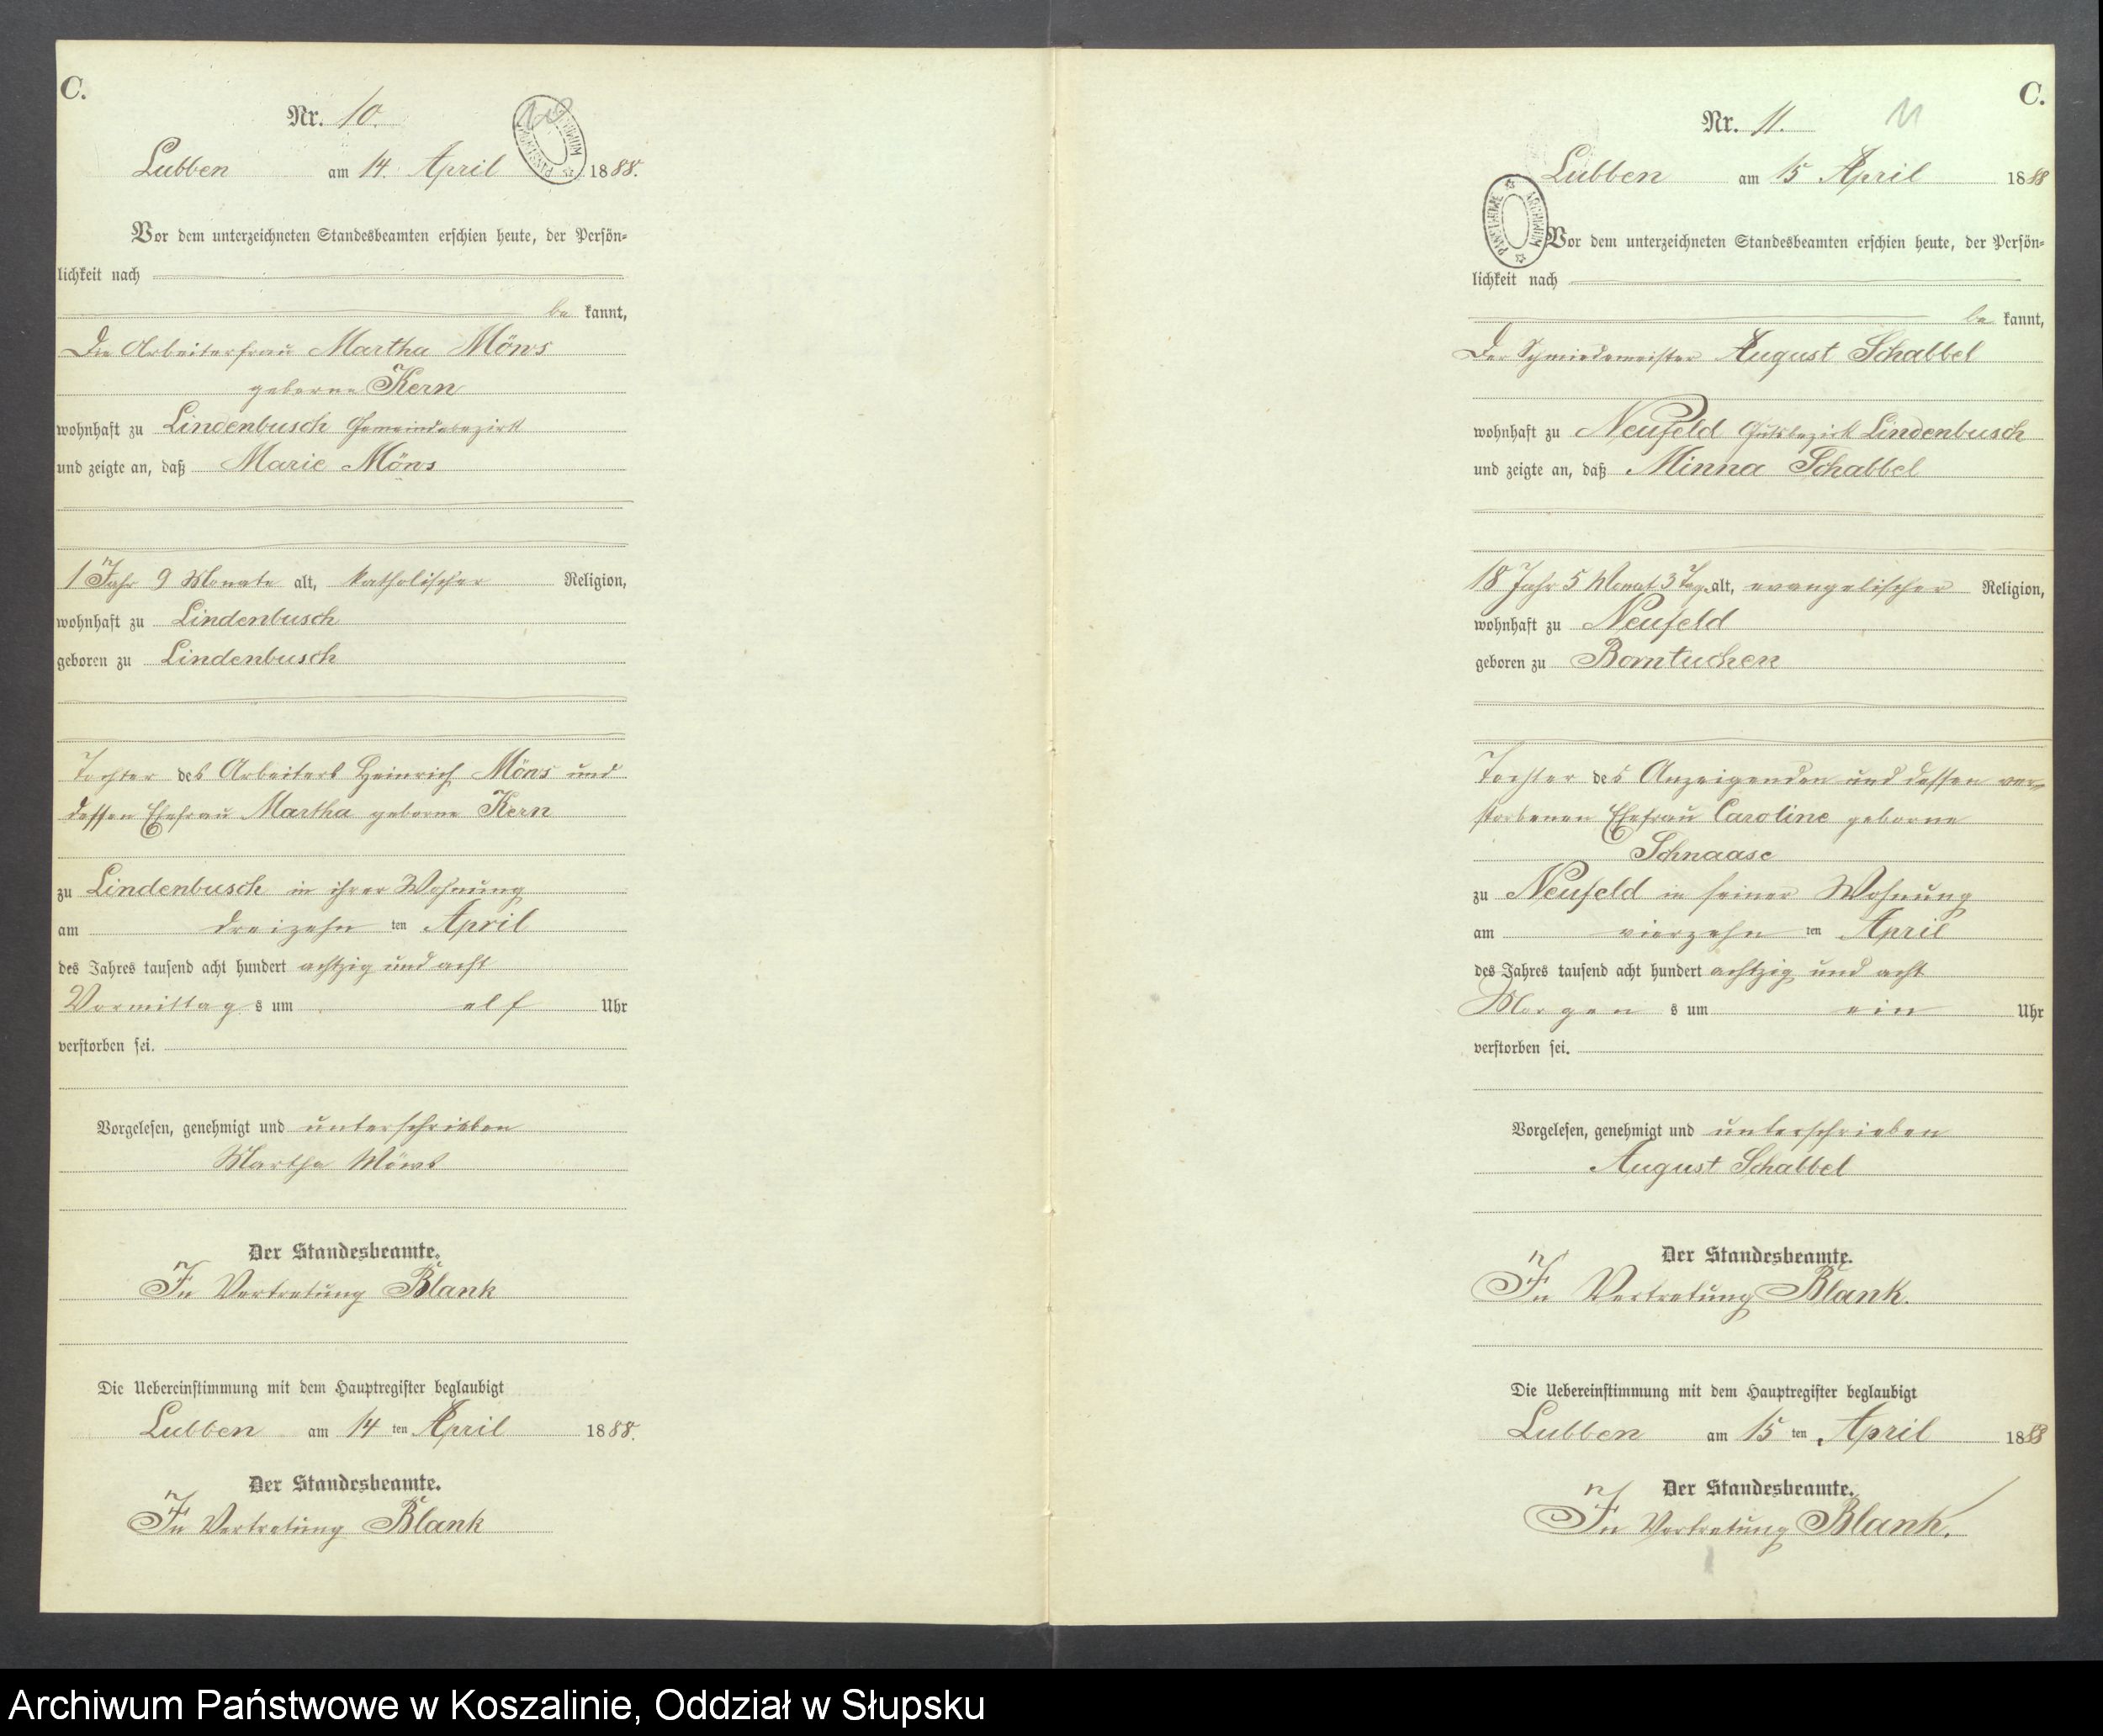 C.
Nr. 10.
Lubben am 14. April 1888.
Vor dem unterzeichneten Standesbeamten erschien heute, der Persön-
lichkeit nach
be kannt,
Die Arbeiterfrau Martha Möws
geborne Kern
wohnhaft zu Lindenbusch Gemeindebezirk
und zeigte an, daß Marie Möws
1 Jahr 9 Monate alt, katholischer Religion,
wohnhaft zu Lindenbusch
geboren zu Lindenbusch
Tochter des Arbeiters Heinrich Möws und
dessen Ehefrau Martha geborne Kern
zu Lindenbusch in ihrer Wohnung
am dreizehn ten April
des Jahres tausend acht hundert achtzig und acht
Vormittag s um elf Uhr
verstorben sei.
Vorgelesen, genehmigt und unterschrieben
Martha Möws
Der Standesbeamte.
In Vertretung Blank
Die Uebereinstimmung mit dem Hauptregister beglaubigt
Lubben am 14 ten April 1888.
Der Standesbeamte.
In Vertretung Blank
C.
Nr. 11. 11
Lubben am 15 April 1888
ARCHIWUM PAŃSTWOWE
Vor dem unterzeichneten Standesbeamten erschien heute, der Persön-
lichkeit nach
be kannt,
Der Schmiedemeister August Schabbel
wohnhaft zu Neufeld Gutsbezirk Lindenbusch
und zeigte an, daß Minna Schabbel
18 Jahr 5 Monat 3 Tag alt, evangelischer Religion,
wohnhaft zu Neufeld
geboren zu Borntuchen
Tochter des Anzeigenden und dessen ver-
storbenen Ehefrau Caroline geborne
Schnaase
zu Neufeld in seiner Wohnung
am vierzehn ten April
des Jahres tausend acht hundert achtzig und acht
Morgen s um ein Uhr
verstorben sei.
Vorgelesen, genehmigt und unterschrieben
August Schabbel
Der Standesbeamte.
In Vertretung Blank.
Die Uebereinstimmung mit dem Hauptregister beglaubigt
Lubben am 15 ten April 1888
Der Standesbeamte.
In Vertretung Blank.
Archiwum Państwowe w Koszalinie, Oddział w Słupsku